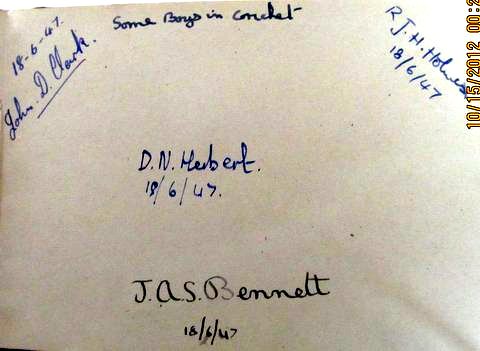 Some Boys in conchet
18-6-47.
John. D. Clark.
R. J. H. Holmes
18/6/47
D. N. Herbert.
18/6/47.
J. A. S. Bennett
18/6/47
10/15/2012 00:2